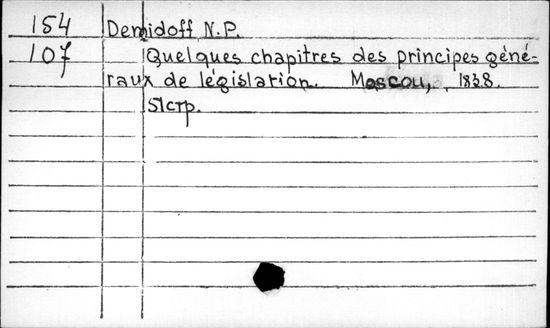 154 Demidoff N.P.
107 Quelques chapitres des principes géné-
raux de législation. Moscou, 1838.
51стр.